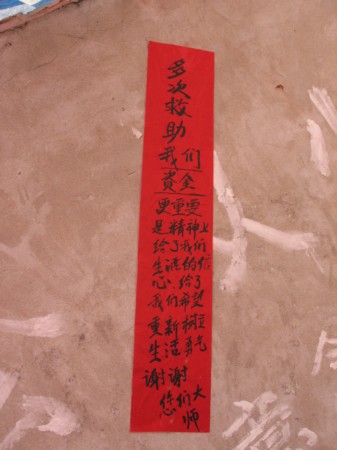 多次救助
我们
資金
更重要
是精神上
给了我们
生活的信
心给了
我们希望
重新树立
生活勇气
谢谢
您们大师